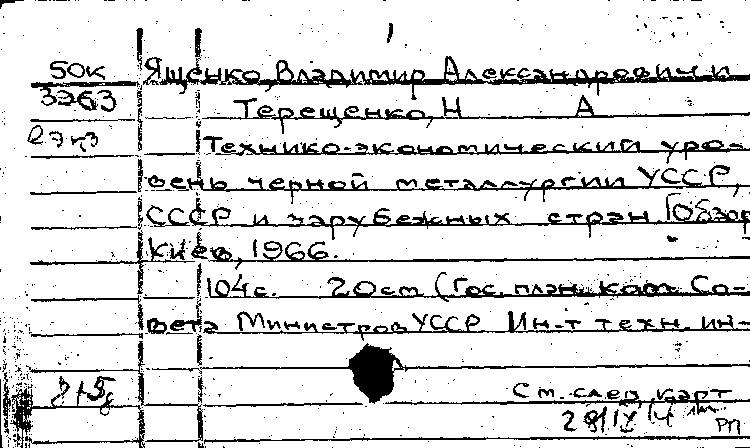 1
50К Ященко, Владимир Александрович и
3963 Терещенко, Н А
Технико-экономический уро-
вень черной металлургии УССР,
СССР и зарубежных стран [Обзор
Киев, 1966.
104с. 20см (Гос. план. ком. Со-
вета Министров УССР Ин-т техн. ин-
См. след. карт
РП